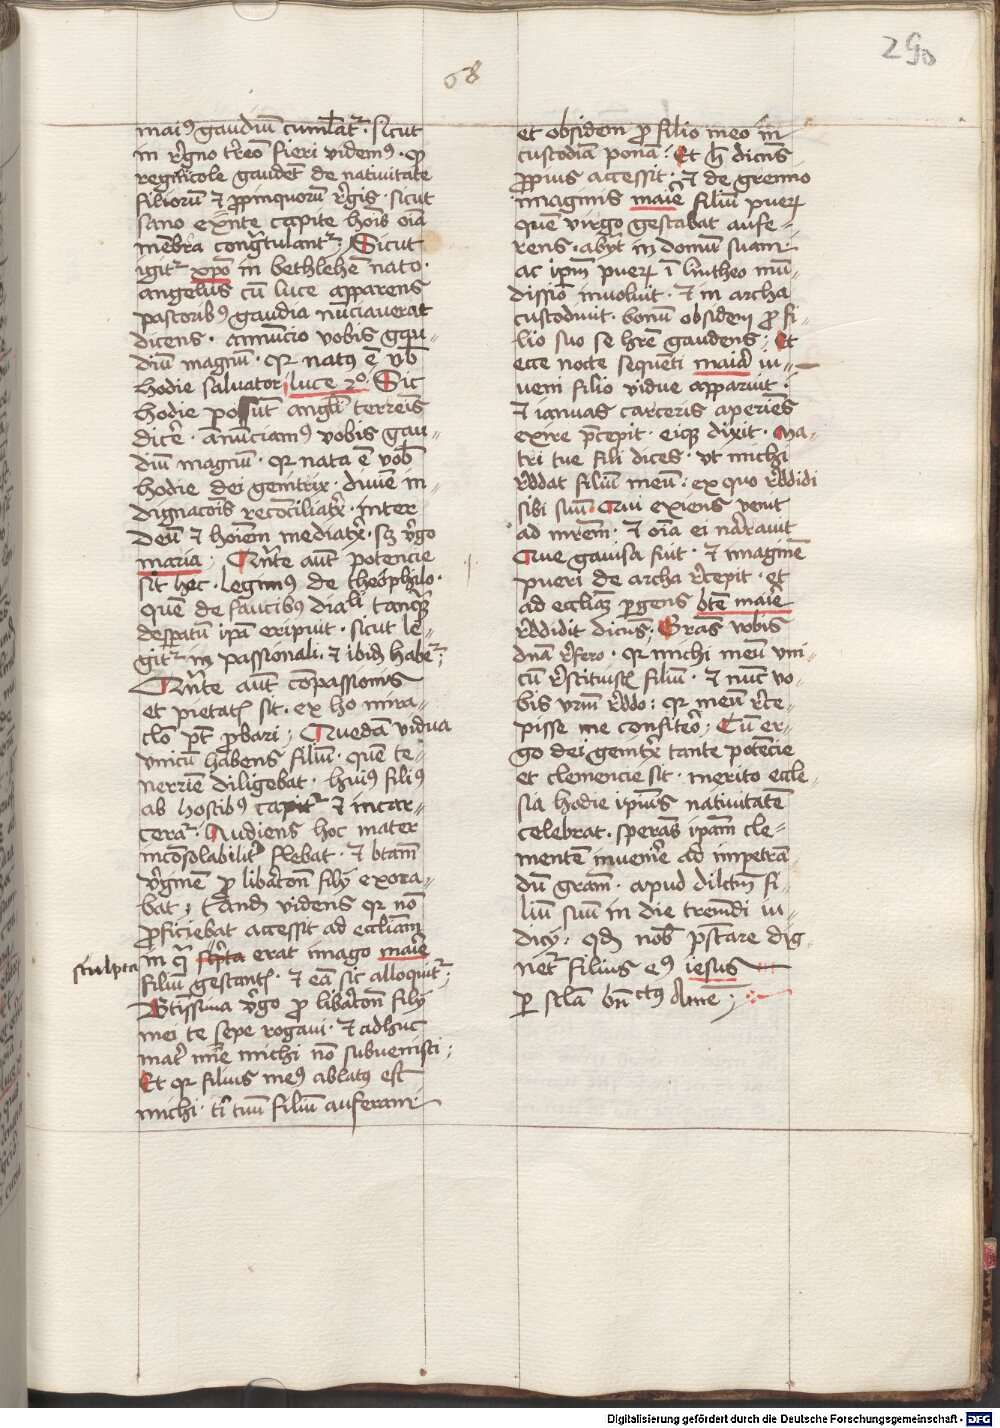 290
68
maiꝰ gaudiū cumlat᷑ · sicut
in rᷣgno tr̄eo fieri videmꝰ · ꝙ
regnicole gaudēt de nativitate
filiorū ⁊ ꝓpinquorū rᷣgis · sicut
sano exn̄te capite hoīs oīa
mēbra congᷓtulant᷑ Sicut
igit᷑ xp̄o in bethlehē nato ·
angelus cū luce apparens
pastoribꝰ gaudia nūciaverat
dicens · annūcio vobis gau-
diū magnū · qr natꝰ ē vob̄
hodie salvator luce 2º · Sic
hodie possūt angl̄i terreis
dicē · ānūciamꝰ vobis gau-
diū magnū · qr nata ē vob̄
hodie dei genitrix · divīe in-
dignacōis recōciliatᷓx · inter
deū ⁊ hoīem mediatᷓx · sꝫ vᷓgo
maria · Qn̄te aūt potencie
sit hec · legimꝰ de theophilo ·
quē de faucibꝰ diali tanqᷓ
despatū ip̄a eripuit · sicut le-
git᷑ in passionali · ⁊ ibidē habet᷑
Qn̄te aūt cōpassionis
et pietatꝭ sit · ex ho mira-
clō pt̄ ꝓbari · Quedā vidua
unicū habens filiū · quē te-
nerriē diligebat · huiꝰ filiꝰ
ab hostibꝰ capit᷑ ⁊ incar-
cerat᷑ · Audiens hoc mater
incōsolabilit᷑ flebat · ⁊ btām
vᷓginē ꝓ libatōn filij exora-
bat · tandē videns qr nō
ꝓficiebat accessit ad eccliam
in qᷓ scpta erat imago marīe
sculpta
filiū gestantꝭ · ⁊ eā sic alloquit᷑
Btīssima vᷓgo ꝓ libatōn filij
mei te sepe rogavi · ⁊ adhuc
matr̄ mīe michi nō subvenisti ·
Et qr filius meꝰ ablatꝰ est
michi · tī tuū filiū auferam
et obsidem ꝓ filio meo in
custodiā ponā · Et h̄ dicēs
ꝓpius accessit · ⁊ de gremio
imaginis marīe filiū puerꝝ
quē virgo gestabat aufe-
rens · abijt in domū suam
ac ip̄m puerꝝ ī lintheo mū-
dissīo involvit · ⁊ in archa
custodivit · bonū obsidem ꝓ fi-
lio suo se hr̄e gaudens · Et
ecce nocte sequēti maria iu-
veni filio vidue apparuit ·
⁊ ianuas carceris aperiēs
exire pᷓcepit · eiqꝫ dixit · ma-
tri tue fili dices · ut michi
rᷣddat filiū meū · ex quo rᷣddidi
sibi suū · Qui exiens venit
ad mr̄em · ⁊ oīa ei narravit
Que gavisa fuit · ⁊ imaginē
pueri de archa rᷣcepit · et
ad eccliaꝫ ꝑgens bt̄e marīe
rᷣddidit dicēs · Grās vobis
dn̄a rᷣfero · qr michi meū uni-
cū rᷣstituistꝭ filiū · ⁊ nūc vo-
bis vrm̄ rᷣddo · qr meū rᷣce-
pisse me confiteor · Cū er-
go dei genitᷓx tante potēcie
et clemencie sit · merito eccle-
sia hodie ipius nativitatē
celebrat · sperās ip̄am cle-
mentē invenīre ad impetrā-
dū grām · apud dilctm̄ fi-
liū suū in die tremdi iu-
dicij · qd nob̄ pᷓstare dig-
net᷑ filius eꝰ iesus
ꝑ scl̄a bn̄ctꝰ Amē
Digitalisierung gefördert durch die Deutsche Forschungsgemeinschaft - DFG